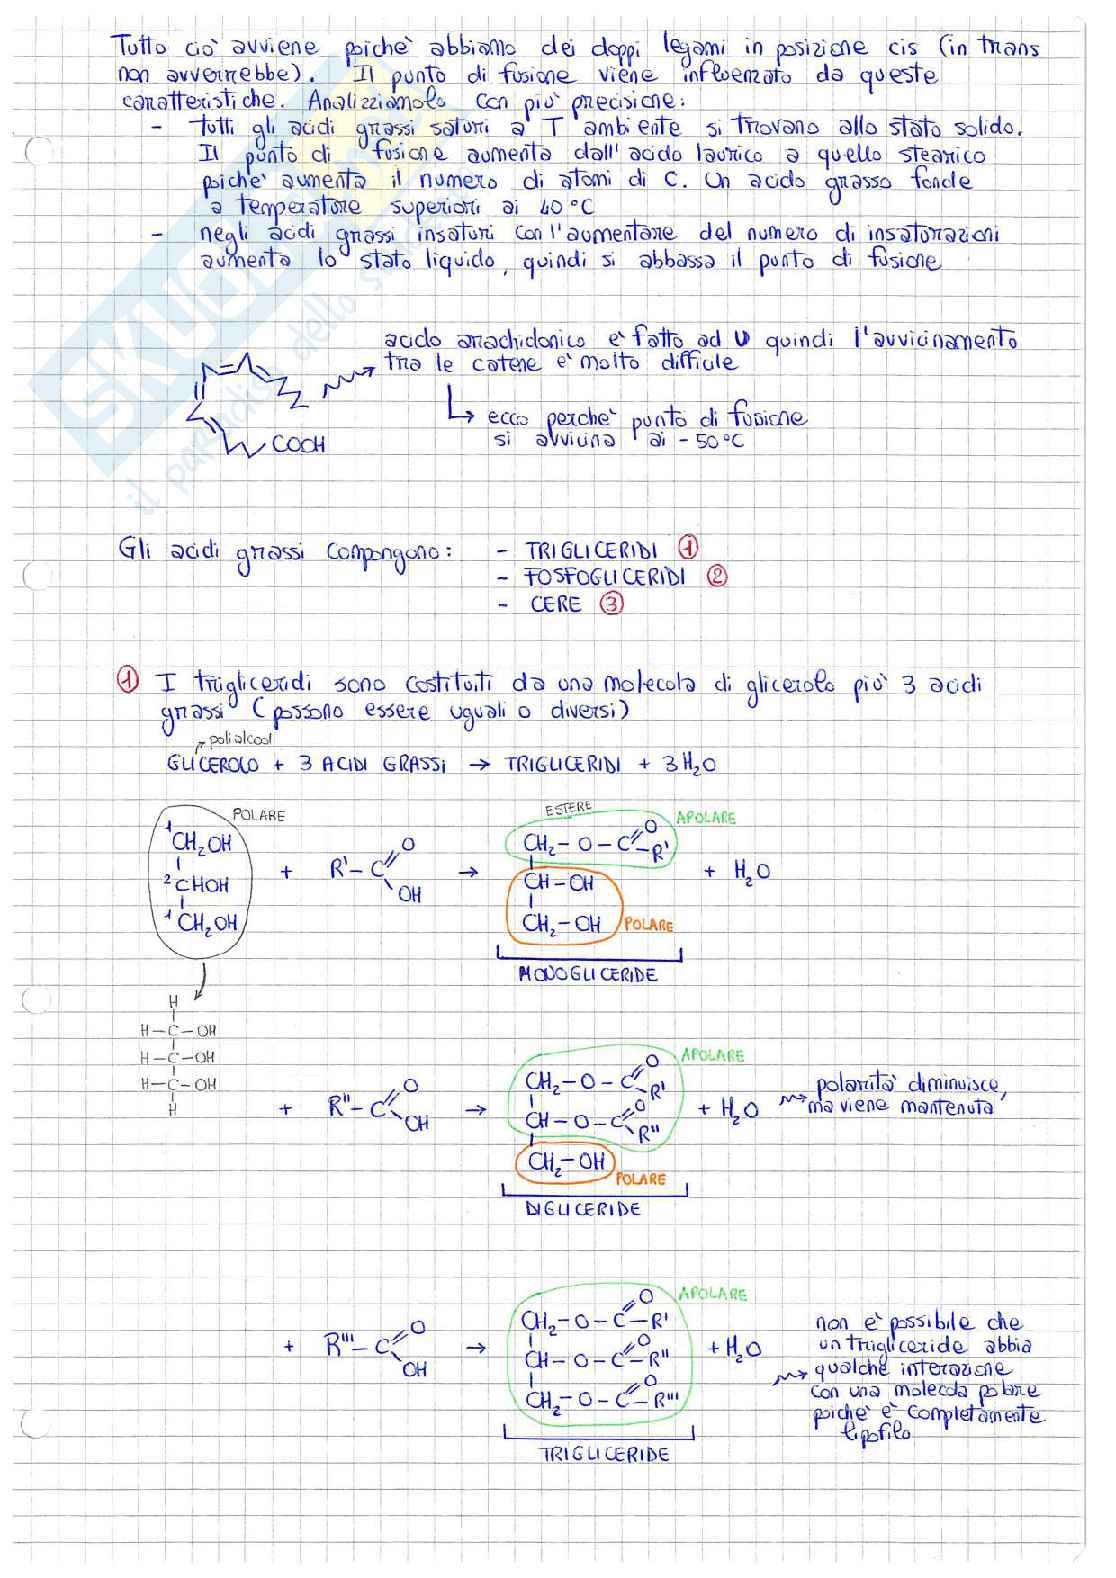 Tutto ciò avviene poichè abbiamo dei doppi legami in posizione cis (in trans
non avverrebbe). Il punto di fusione viene influenzato da queste
caratteristiche. Analizziamolo con più precisione:
- tutti gli acidi grassi saturi a T ambiente si trovano allo stato solido.
Il punto di fusione aumenta dall'acido laurico a quello stearico
poichè aumenta il numero di atomi di C. Un acido grasso fonde
a temperature superiori ai 40°C
- negli acidi grassi insaturi con l'aumentare del numero di insaturazioni
aumenta lo stato liquido, quindi si abbassa il punto di fusione
acido arachidonico è fatto ad U quindi l'avvicinamento
tra le catene è molto difficile
ecco perchè punto di fusione
si avvicina ai -50°C
COOH
Gli acidi grassi compongono: - TRIGLICERIDI ①
- FOSFOGLICERIDI ②
- CERE ③
① I trigliceridi sono costituiti da una molecola di glicerolo più 3 acidi
grassi (possono essere uguali o diversi)
polialcool
GLICEROLO + 3 ACIDI GRASSI → TRIGLICERIDI + 3H₂O
POLARE
ESTERE
APOLARE
¹CH₂OH
²CHOH
¹CH₂OH
+ R'-C O OH →
CH₂-O-C O R'
CH-OH
CH₂-OH
POLARE
+ H₂O
MONOGLICERIDE
H
H-C-OH
H-C-OH
H-C-OH
H
+ R''-C O OH →
APOLARE
CH₂-O-C O R'
CH-O-C O R''
CH₂-OH
POLARE
+ H₂O
polarità diminuisce,
ma viene mantenuta
DIGLICERIDE
+ R'''-C O OH →
APOLARE
CH₂-O-C O -R'
CH-O-C O -R''
CH₂-O-C O -R'''
+ H₂O
non è possibile che
un trigliceride abbia
qualche interazione
con una molecola polare
poichè è completamente
lipofilo
TRIGLICERIDE